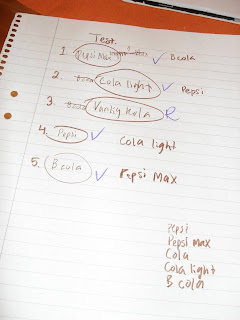 Test.
1. Pepsi Max ✓ B cola
2. Cola light ✓ Pepsi
3. Vanlig Kola R
4. Pepsi ✓ Cola light
5. B cola ✓ Pepsi Max
Pepsi
Pepsi max
Cola
Cola light
B cola